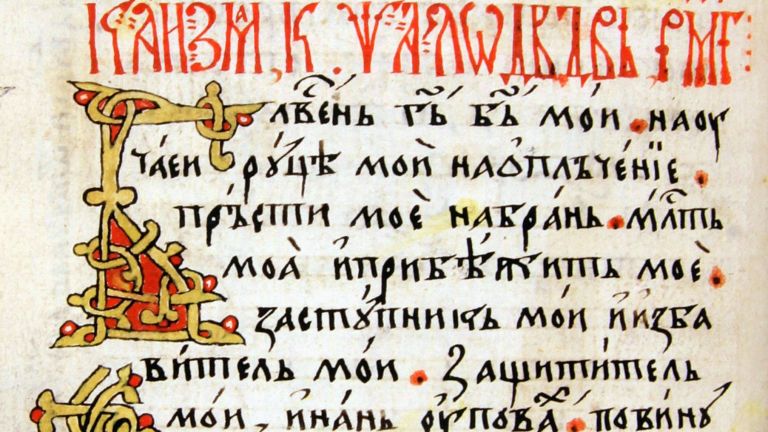 КАИЗМⷶА, К. ѰАЛѠ ДВДВЬ РМГ
Блве҃нь г҃ь б҃ь мо́и . наоу
чаеи рꙋ́цѣ моѝ наѡплъче́нїе .
пръ́сти моѐ набра́нь . млⷭ҇ть
моа̀ и҆прибѣ́жить моѐ .
застꙋ́пникь мо́и и҆изба
ви́тель мо́и . Защити́тель
мо́и, и҆на́нь оу҆поваⷯ . пови́нꙋ